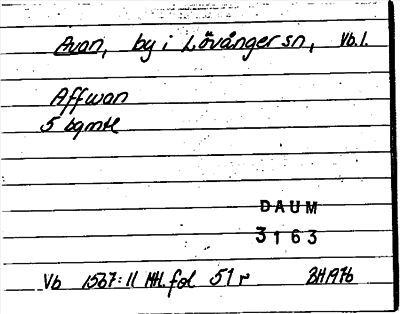 Avan, by i Lövånger sn, Vb.l.
Affwan
5 bgmtl
DAUM
3163
Vb 1567:11 MH. fol 51 r BH1976